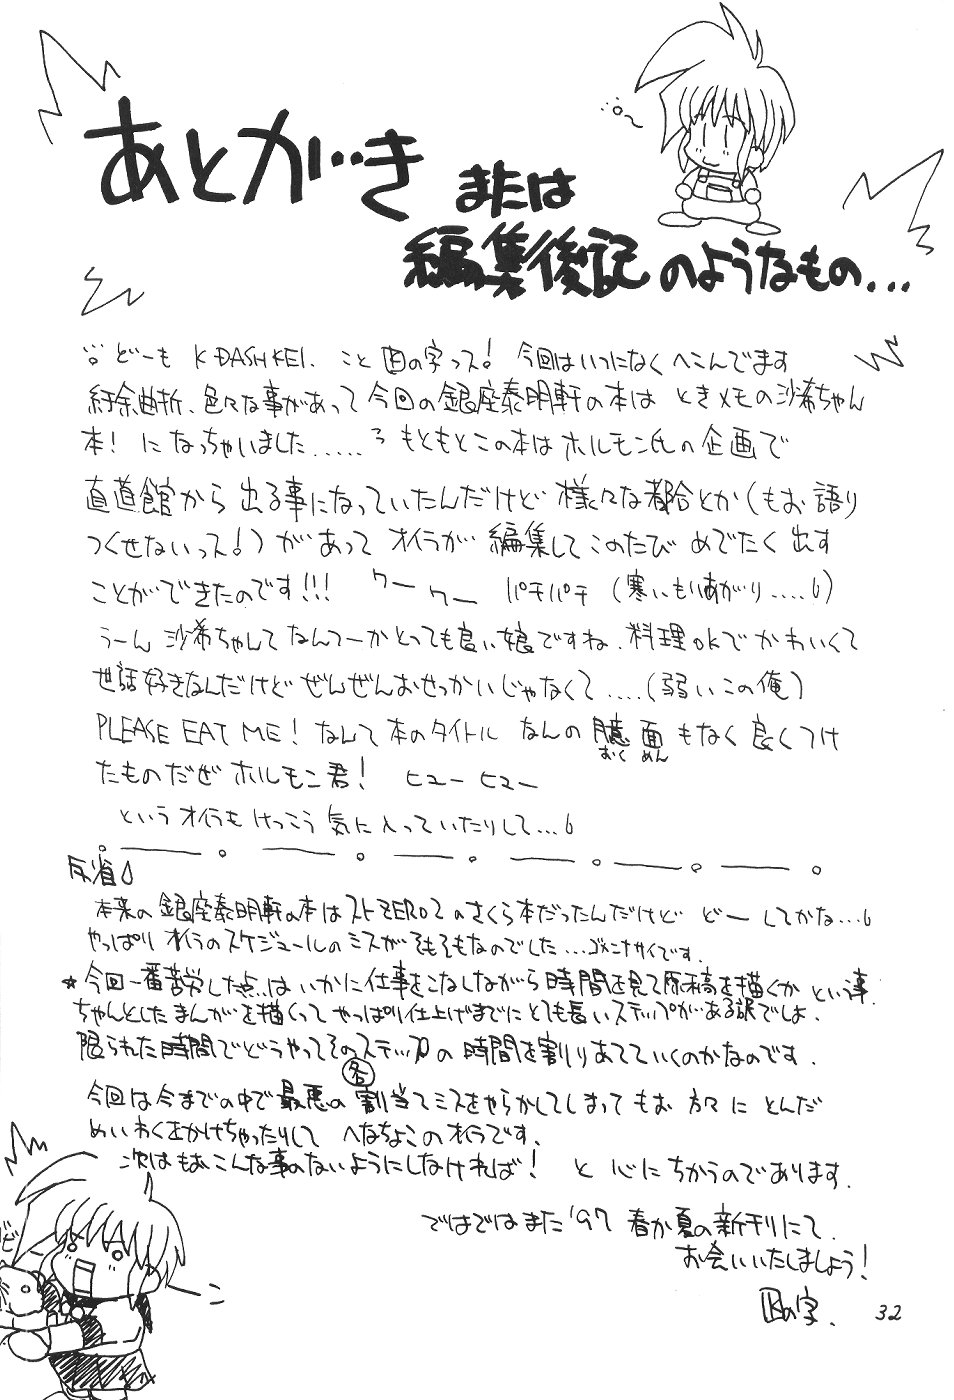 あとがき または
編集後記のようなもの...
どーも K-DASH KEI. こと の字っス! 今回はいつになくへこんでます
紆余曲折、色々な事があって今回の銀座泰明軒の本は ときメモの沙希ちゃん
本! に なっちゃいました..... もともとこの本はホルモン氏の企画で
直道館から 出る事になっていたんだけど 様々な都合とか(もお語り
つくせないっス!)があって オイラが 編集して このたび めでたく出す
ことができたのです!!! ワー ワー パチパチ (寒いもりあがり....)
うーん 沙希ちゃんて なんてーかとっても良い娘ですね. 料理okで かわいくて
世話好きなんだけど ぜんぜんおせっかいじゃなくて ....(弱いこの俺)
PLEASE EAT ME! なんて 本のタイトル なんの 臆面もなく良くつけ
おく めん
たものだぜ ホルモン君! ヒューヒュー
という オイラも けっこう 気に入っていたりして...
反省
本来の 銀座泰明軒の本は ストZERO2のさくら本だったんだけど どーしてかな...
やっぱり オイラのスケジュールのミスがそもそもなのでした...ゴメンナサイです.
★今回一番苦労した点..は いかに仕事をこなしながら 時間を見て原稿を描くか という事.
ちゃんとした まんがを描くって やっぱり仕上げまでに とても長いステップがある訳でしょ.
限られた時間でどうやってそのステップの 時間を割りあてていくのかなのです.
各
今回は今までの中で 最悪の 割当てミスをやらかしてしまって もお 方々に とんだ
めいわくをかけちゃったりして へなちょこの オイラです.
次は もお こんな事のないようにしなければ! と 心に ちかうのであります.
ではでは また '97 春か夏の新刊にて.
お会いいたしましょう!
の字.
32